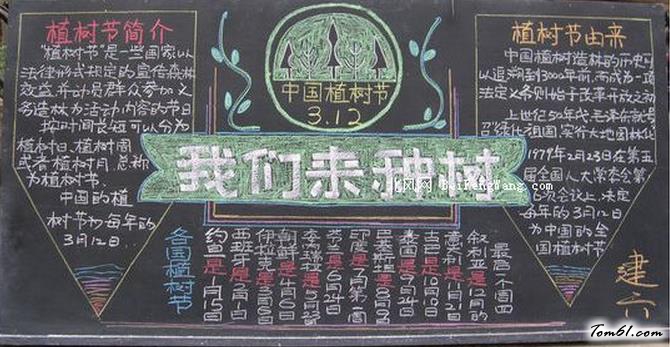 植树节简介
"植树节"是一些国家以
法律形式规定的宣传森林
效益,并动员群众参加义
务造林为活动内容的节日
按时间长短可以分为
植树日、植树周
或者植树月,总称
为植树节.
中国的植
树节为每年的
3月12日
中国植树节
3.12
我们来种树
植树节由来
中国植树造林的历史可
以追溯到3000年前,而成为一项
法定义务则始于改革开放之初
上世纪50年代,毛泽东就号
召绿化祖国,实行大地园林化
1979年2月23日在第五
届全国人大常委会第
6次会议上,决定
每年的3月12日
为中国的全
国植树节
各国植树节
约旦是1月15日
西班牙是2月1日
伊拉克是3月6日
朝鲜是4月6日
泰国是9月24日
吉
意大利是11月21日
叙利亚是12月的
最后一个周四
建六
BeiFengWang.com
Tom61.com